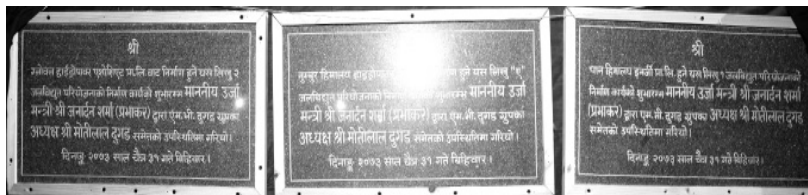 श्री
ग्लोबल हाईड्रोपावर एशोसिएट प्रा.लि बाट निर्माण हुने यस लिखु २
जलविद्युत परियोजनाको निर्माण कार्यको शुभारम्भ माननीय उर्जा
मन्त्री श्री जनार्दन शर्मा (प्रभाकर) द्वारा एम.भी. दुगड ग्रुपका
अध्यक्ष श्री मोतीलाल दुगड समेतको उपस्थितिमा गरियो।
दिनाङ्क २०७३ साल चैत्र ३१ गते बिहिवार।
हिमालय हाइड्रो हुने यस लिखु "ए"
जलविद्युत परियोजनाको माननीय उर्जा
मन्त्री श्री जनार्दन शर्मा (प्रभाकर) द्वारा एम.भी. दुगड ग्रुपका
अध्यक्ष श्री मोतीलाल दुगड समेतको उपस्थितिमा गरियो।
दिनाङ्क २०७३ साल चैत्र ३१ गते बिहिवार।
श्री
पान हिमालय इनर्जी प्रा.लि. हुने यस लिखु १ जलविद्युत परियोजनाको
निर्माण कार्यको शुभारम्भ माननीय उर्जा मन्त्री श्री जनार्दन शर्मा
(प्रभाकर) द्वारा एम.भी. दुगड ग्रुपका अध्यक्ष श्री मोतीलाल दुगड
समेतको उपस्थितिमा गरियो।
दिनाङ्क २०७३ साल चैत्र ३१ गते बिहिवार।